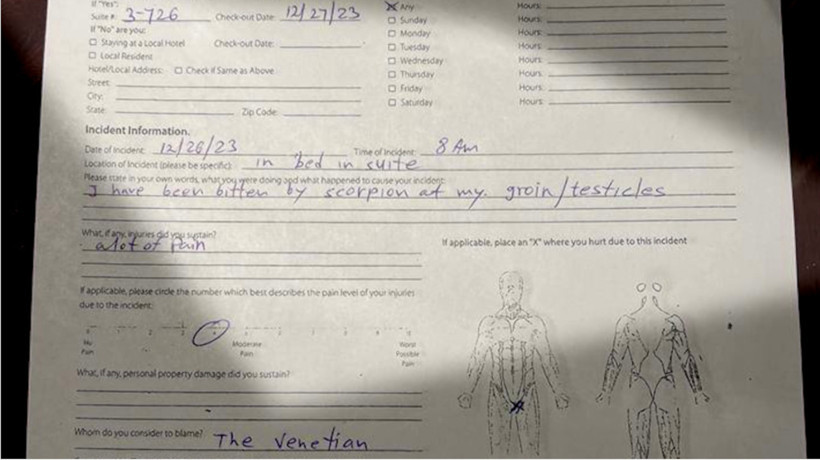 If "Yes":
Suite #: 3-726 Check-out Date: 12/27/23
If "No" are you:
☐ Staying at a Local Hotel Check-out Date:
☐ Local Resident
Hotel/Local Address: ☐ Check if Same as Above
Street:
City:
State: Zip Code:
☒ Any Hours:
☐ Sunday Hours:
☐ Monday Hours:
☐ Tuesday Hours:
☐ Wednesday Hours:
☐ Thursday Hours:
☐ Friday Hours:
☐ Saturday Hours:
Incident Information.
Date of Incident: 12/26/23 Time of Incident: 8 Am
Location of Incident (please be specific): in bed in suite
Please state in your own words, what you were doing and what happened to cause your incident:
I have been bitten by scorpion at my groin/testicles
What, if any, injuries did you sustain?
alot of pain
If applicable, please circle the number which best describes the pain level of your injuries
due to the incident:
No Pain
Moderate Pain
Worst Possible Pain
What, if any, personal property damage did you sustain?
Whom do you consider to blame? The Venetian
If applicable, place an "X" where you hurt due to this incident